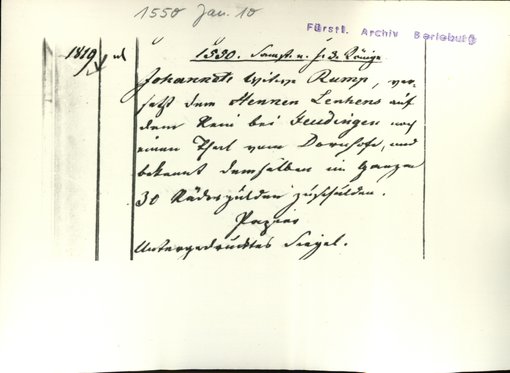 1550 Jan. 10
Fürstl. Archiv Berleburg
1819
1550. Samst. n. h. 3. Könige
Johannah Witwe Rump, ver-
setzt dem Hennen Lenkens auf
dem Reni bei Feudingen noch
einen Theil vom Dornhofe, und
bekennt demselben im Ganzen
30 Rädergulden zuschulden.
Papier
Untergedrucktes Siegel.